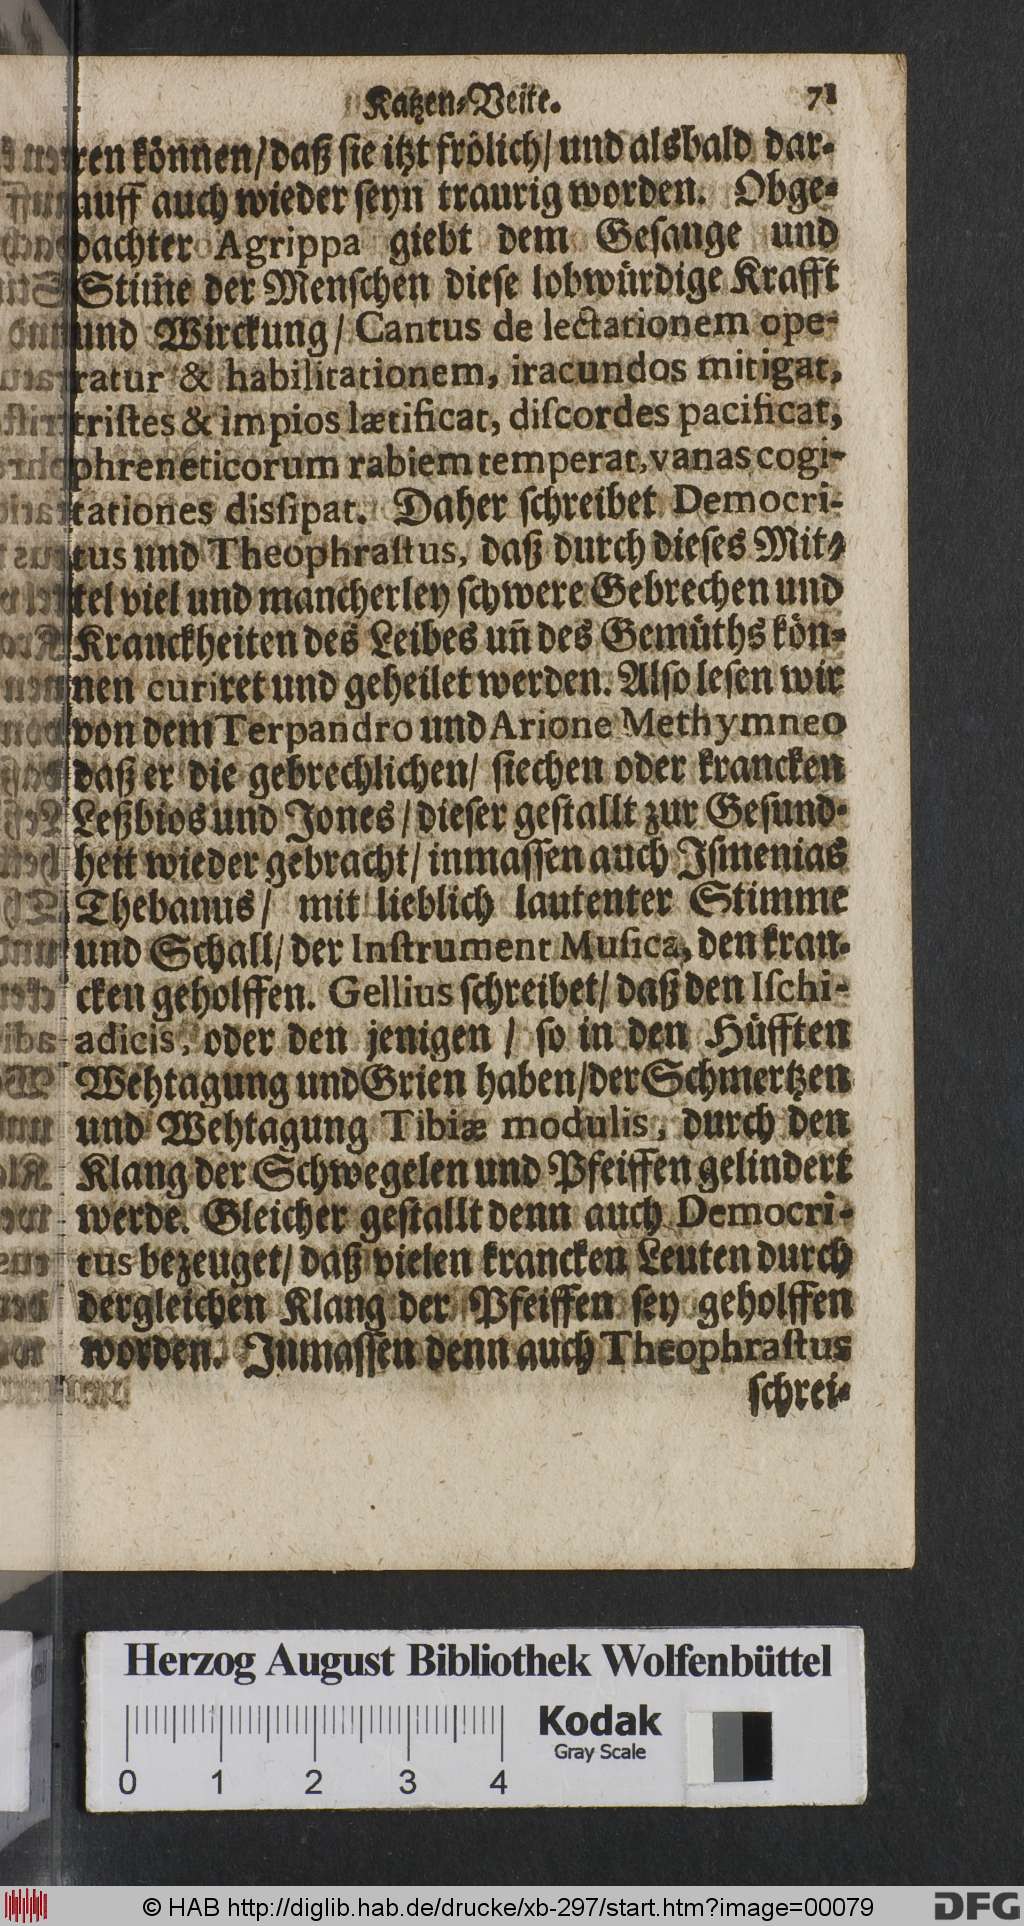 Katzen-Veite. 71
ren können/daß sie itzt frölich/und alsbald dar-
auff auch wieder seyn traurig worden. Obge-
dachter Agrippa giebt dem Gesange und
Stim̃e der Menschen diese lobwürdige Krafft
und Wirckung/ Cantus de lectationem ope-
ratur & habilitationem, iracundos mitigat,
tristes & impios lætificat, discordes pacificat,
phreneticorum rabiem temperat, vanas cogi-
tationes dissipat. Daher schreibet Democri-
tus und Theophrastus, daß durch dieses Mit-
tel viel und mancherley schwere Gebrechen und
Kranckheiten des Leibes uñ des Gemüths kön-
nen curiret und geheilet werden. Also lesen wir
von dem Terpandro und Arione Methymneo
daß er die gebrechlichen/ siechen oder krancken
Leßbios und Jones/dieser gestallt zur Gesund-
heit wieder gebracht/inmassen auch Ismenias
Thebanus/ mit lieblich lautenter Stimme
und Schall/ der Instrument Musica, den kran-
cken geholffen. Gellius schreibet/ daß den Ischi-
adicis, oder den jenigen / so in den Hüfften
Wehtagung und Grien haben/der Schmertzen
und Wehtagung Tibiæ modulis, durch den
Klang der Schwegelen und Pfeiffen gelindert
werde. Gleicher gestallt denn auch Democri-
tus bezeuget/ daß vielen krancken Leuten durch
dergleichen Klang der Pfeiffen sey geholffen
worden. Inmassen denn auch Theophrastus
schrei-
Herzog August Bibliothek Wolfenbüttel
Kodak
Gray Scale
0 1 2 3 4
© HAB http://diglib.hab.de/drucke/xb-297/start.htm?image=00079
DFG